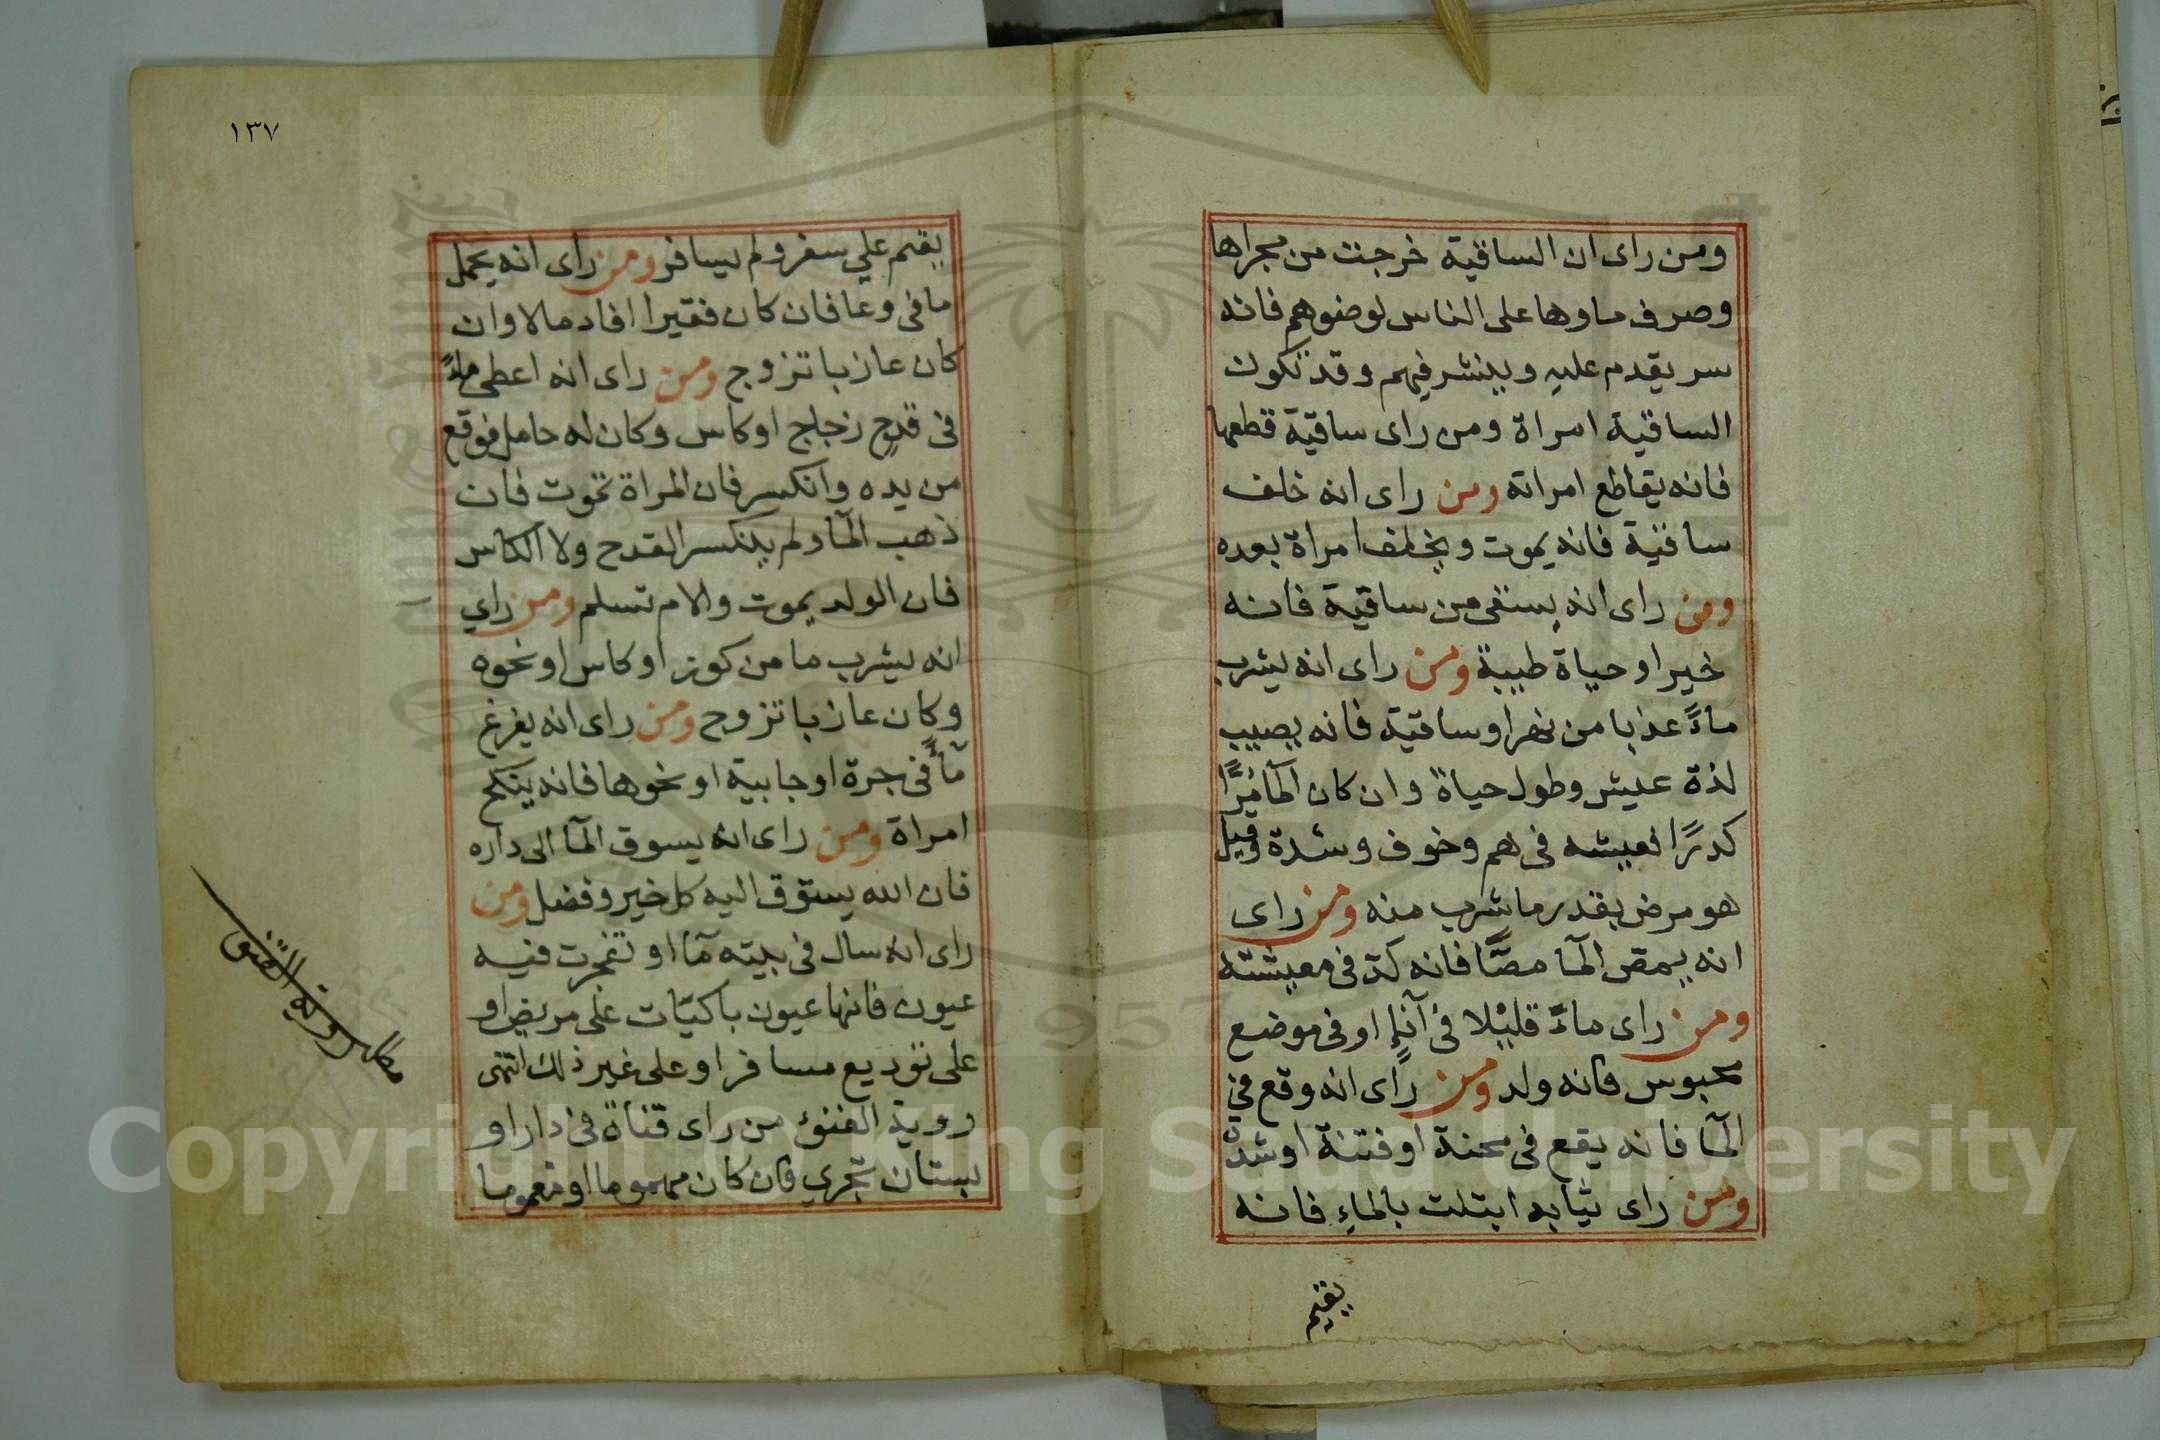 ومن راى ان الساقية خرجت من مجراها
وصرف ماوها على الناس لوضوهم فانه
سر يقدم عليه وينشر فيهم وقد تكون
الساقية امراة ومن راى ساقية قطعها
فانه يقاطع امراته ومن راى انه خلف
ساقية فانه يموت ويخلف امراة بعده
ومن راى انه يستقى من ساقية فانه
خيرا وحياة طيبة ومن راى انه يشرب
ماءً عذبا من نهر او ساقية فانه يصيب
لذة عليش وطول حياة وان كان المآ مُرًا
كدرًا فعيشه فى هم وخوف وشدة وقيل
هو مرض بقدر ما شرب منه ومن راى
انه يمص المآ مصًّا فانه كدّ فى معيشته
ومن راى ماءً قليلا فى آناءٍ او فى موضع
محبوس فانه ولد ومن راى انه وقع في
المآ فانه يقع فى محنة او فتنة او شدة
ومن راى ثيابه ابتلت بالماءِ فانه
يقيم
١٣٧
يقيم علي سفر ولم يسافر ومن راى انه يحمل
ما فى وعا فان كان فقيرا افاد مالا وان
كان عازبا تزوج ومن راى انه اعطى ماءً
فى قدح زجاج او كاس وكان له حامل فوقع
من يده وانكسر فان المراة تموت فان
ذهب المآ ولم ينكسر القدح ولا الكاس
فان الولد يموت والام تسلم ومن راي
انه يشرب ما من كوز او كاس او نحوه
وكان عازبا تزوج ومن راى انه يفرغ
مآً فى جرة او جابية او نحوها فانه ينكح
امراة ومن راى انه يسوق المآ الى داره
فان الله يستوق اليه كل خير وفضل ومن
راى انه سال فى بيته مآ او تفجرت فيه
عيون فانها عيون باكيّات على مريض او
على توديع مسافر او على غير ذلك انتهى
روية القنى من راى قناة فى دار او
بستان تجري فان كان مهموما او مغموما
روية القنى